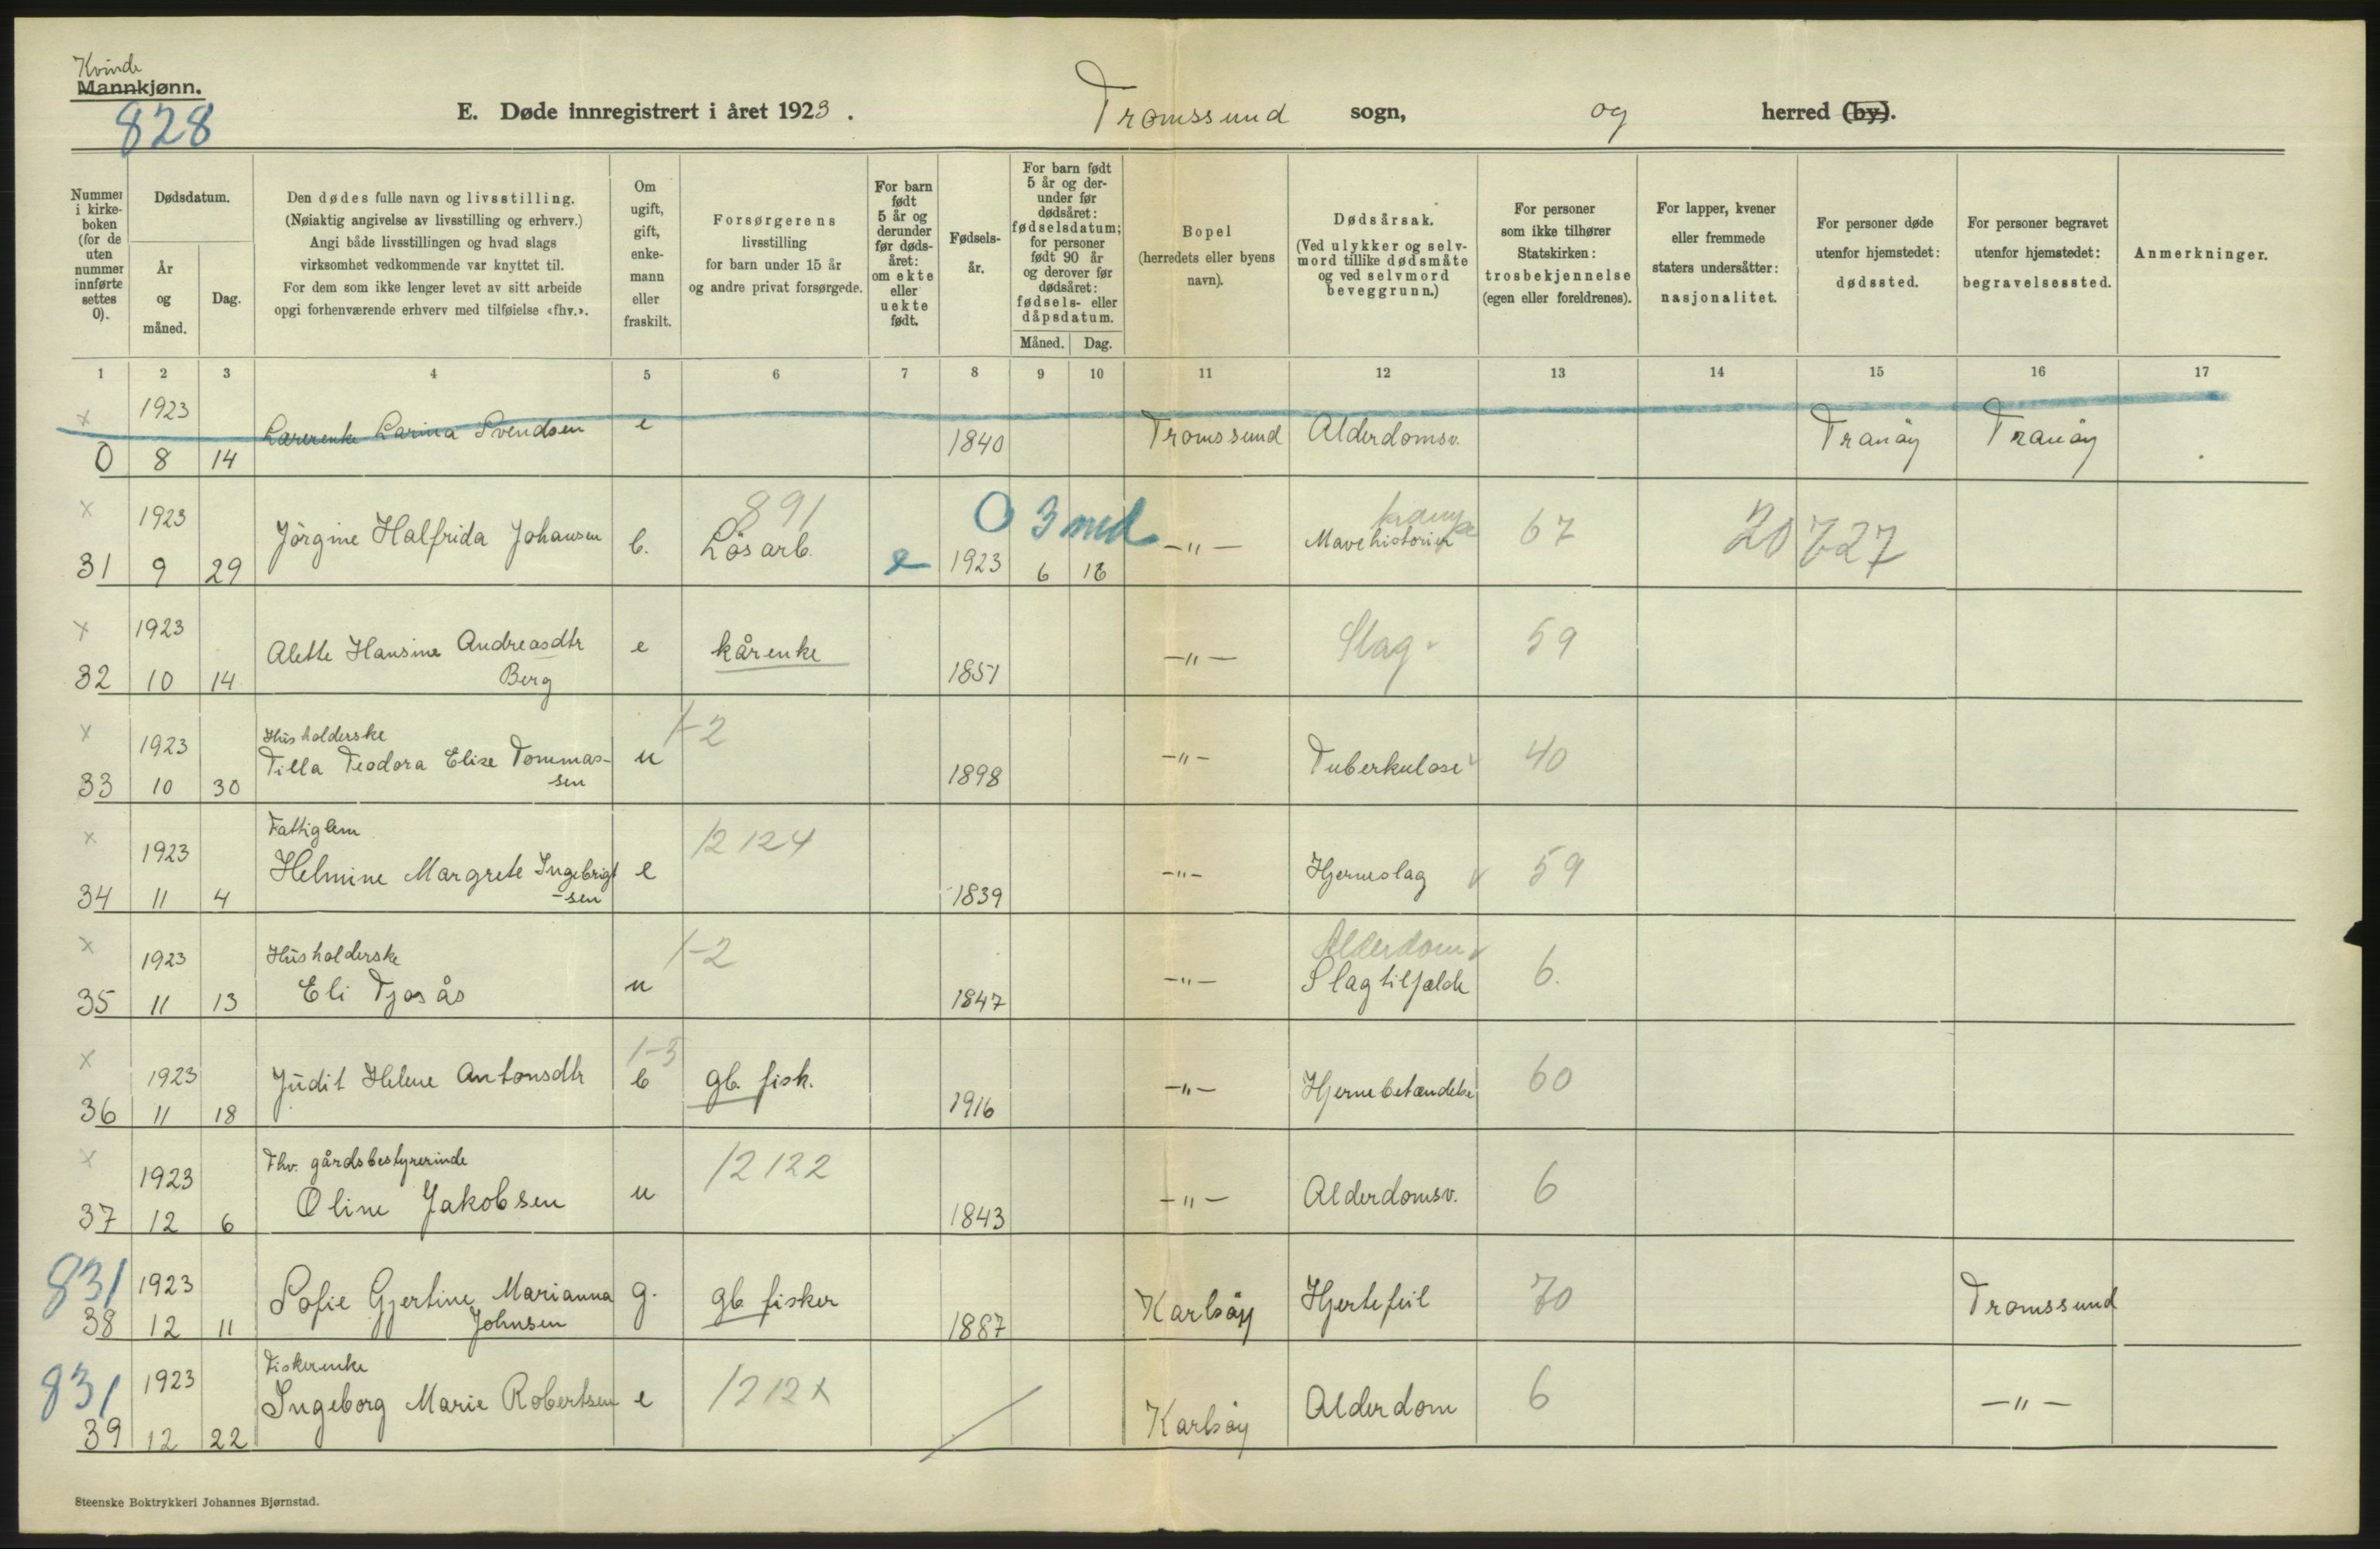 Kvinde
Mannkjønn.
828
E. Døde innregistrert i året 1923.
Tromssund sogn, og herred (by).
Nummer i kirkeboken (for de uten nummer innførte settes 0).
Dødsdatum.
År og måned.
Dag.
Den dødes fulle navn og livsstilling.
(Nøiaktig angivelse av livsstilling og erhverv.)
Angi både livsstillingen og hvad slags
virksomhet vedkommende var knyttet til.
For dem som ikke lenger levet av sitt arbeide
opgi forhenværende erhverv med tilføielse «fhv.».
Om ugift, gift, enkemann eller fraskilt.
Forsørgerens
livsstilling
for barn under 15 år
og andre privat forsørgede.
For barn født 5 år og derunder før dødsåret: om ekte eller uekte født.
Fødselsår.
For barn født 5 år og derunder før dødsåret: fødselsdatum; for personer født 90 år og derover før dødsåret: fødsels- eller dåpsdatum.
Måned. Dag.
Bopel
(herredets eller byens navn).
Dødsårsak.
(Ved ulykker og selvmord tillike dødsmåte og ved selvmord beveggrunn.)
For personer som ikke tilhører Statskirken: trosbekjennelse (egen eller foreldrenes).
For lapper, kvener eller fremmede staters undersåtter: nasjonalitet.
For personer døde utenfor hjemstedet: dødssted.
For personer begravet utenfor hjemstedet: begravelsessted.
Anmerkninger.
1 2 3 4 5 6 7 8 9 10 11 12 13 14 15 16 17
x 1923
0 8 14 Lærerenke Larina Svendsen e 1840 Tromssund Alderdomsv. Tranöy Tranöy
x 1923 891 0 3 md krampe
31 9 29 Jörgine Halfrida Johansen b. Lös arb. e 1923 6 18 -"- Mavehistorier 67 20727
x 1923
32 10 14 Alette Hansine Andreasdtr Berg e kårenke 1851 -"- Slag 59
x 1923 Husholderske 1-2
33 10 30 Tilla Teodora Elise Tommassen u 1898 -"- Tuberkulose 40
x 1923 Fattiglem 12124
34 11 4 Helmine Margrete Ingebrigt-sen e 1839 -"- Hjerneslag v 59
x 1923 Husholderske 1-2 Alderdom v
35 11 13 Eli Tjosås u 1847 -"- Slagtilfælde 6.
x 1923 1-3
36 11 18 Judit Helene Antonsdtr b gb. fisk. 1916 -"- Hjernebetændelse 60
x 1923 Fhv. gårdsbestyrerinde 12122
37 12 6 Oline Jakobsen u 1843 -"- Alderdomsv. 6
831 1923
38 12 11 Sofie Gjertine Marianna Johnsen g. gb fisker 1887 Karlsöy Hjertefeil 70 Tromssund
831 1923 Fiskerenke
39 12 22 Ingeborg Marie Robertsen e 1212x Karlsöy Alderdom 6 -"-
Steenske Boktrykkeri Johannes Bjørnstad.